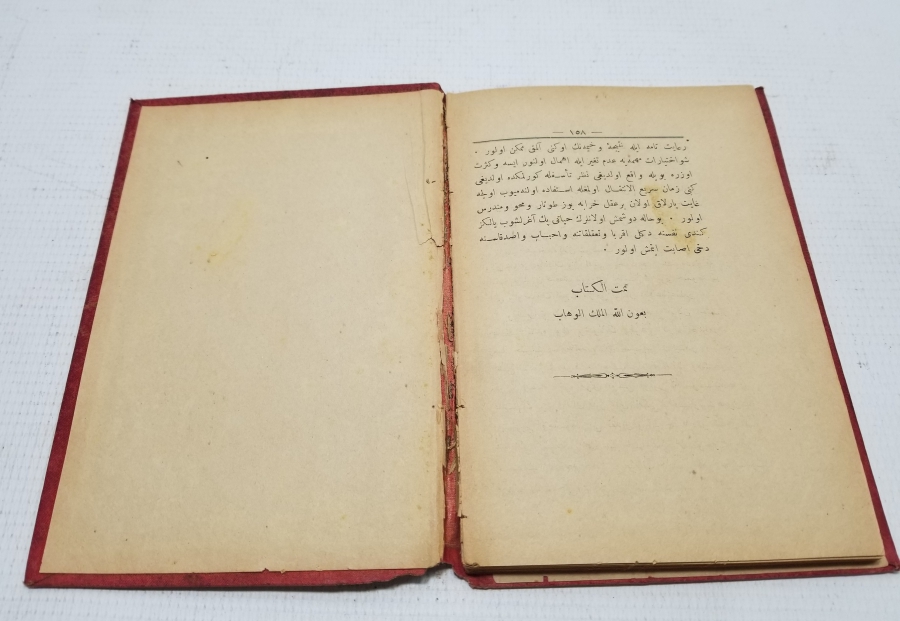 — ١٥٨ —
رعايت تامه ايله نتيجهٔ وخيمه‌نك اوكنى آلمق ممكن اولور .
شو اختبارات مهمه‌يه عدم تغير ايله اهمال اولنور ايسه وكثرت
اوزره بويله واقع اولديغى نظر تأسفله كورلمكده اولديغى
كبى زمان سريع الانتقال اولمغله استفاده اولنه‌ميوب اويله
غايت پارلاق اولان برعقل خرابه يوز طوتار ومحو ومندرس
اولور . بوحاله دوشمش اولانلرك حياتى پك آغرلشوب يالكز
كندى نفسنه دكل اقربا وتعلقاتنه واحباب واصدقاسنه
دخى اصابت ايتمش اولور .
تمت الكتاب
بعون الله الملك الوهاب